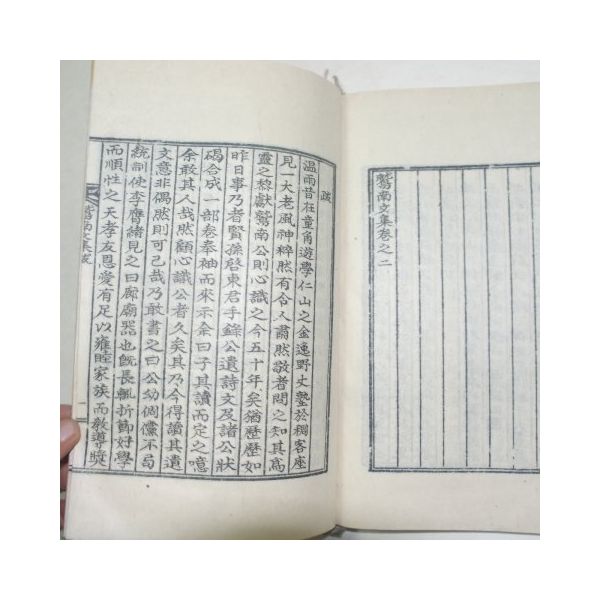 鷲南文集卷之二
跋
溫雨昔在童角遊學仁山之金逸野丈塾於稠客座
見一大老風神粹然有令人肅然敬者問之知其高
靈之黎獻鷲南公則心識之今五十年矣猶歷歷如
昨日事乃者賢孫啓東君手錄公遺詩文及諸公狀
碣合成一部卷奉袖而來示余曰子其讀而定之噫
余敢其人哉然顧心識公者久矣其乃今得讀其遺
文意非偶然則可已哉乃敢書之曰公幼倜儻不局
統訓使李膺緖見之曰廊廟器也旣長輒折節好學
而順性之天孝友恩愛有足以雍睦家族而敎導奬
鷲南文集跋
一